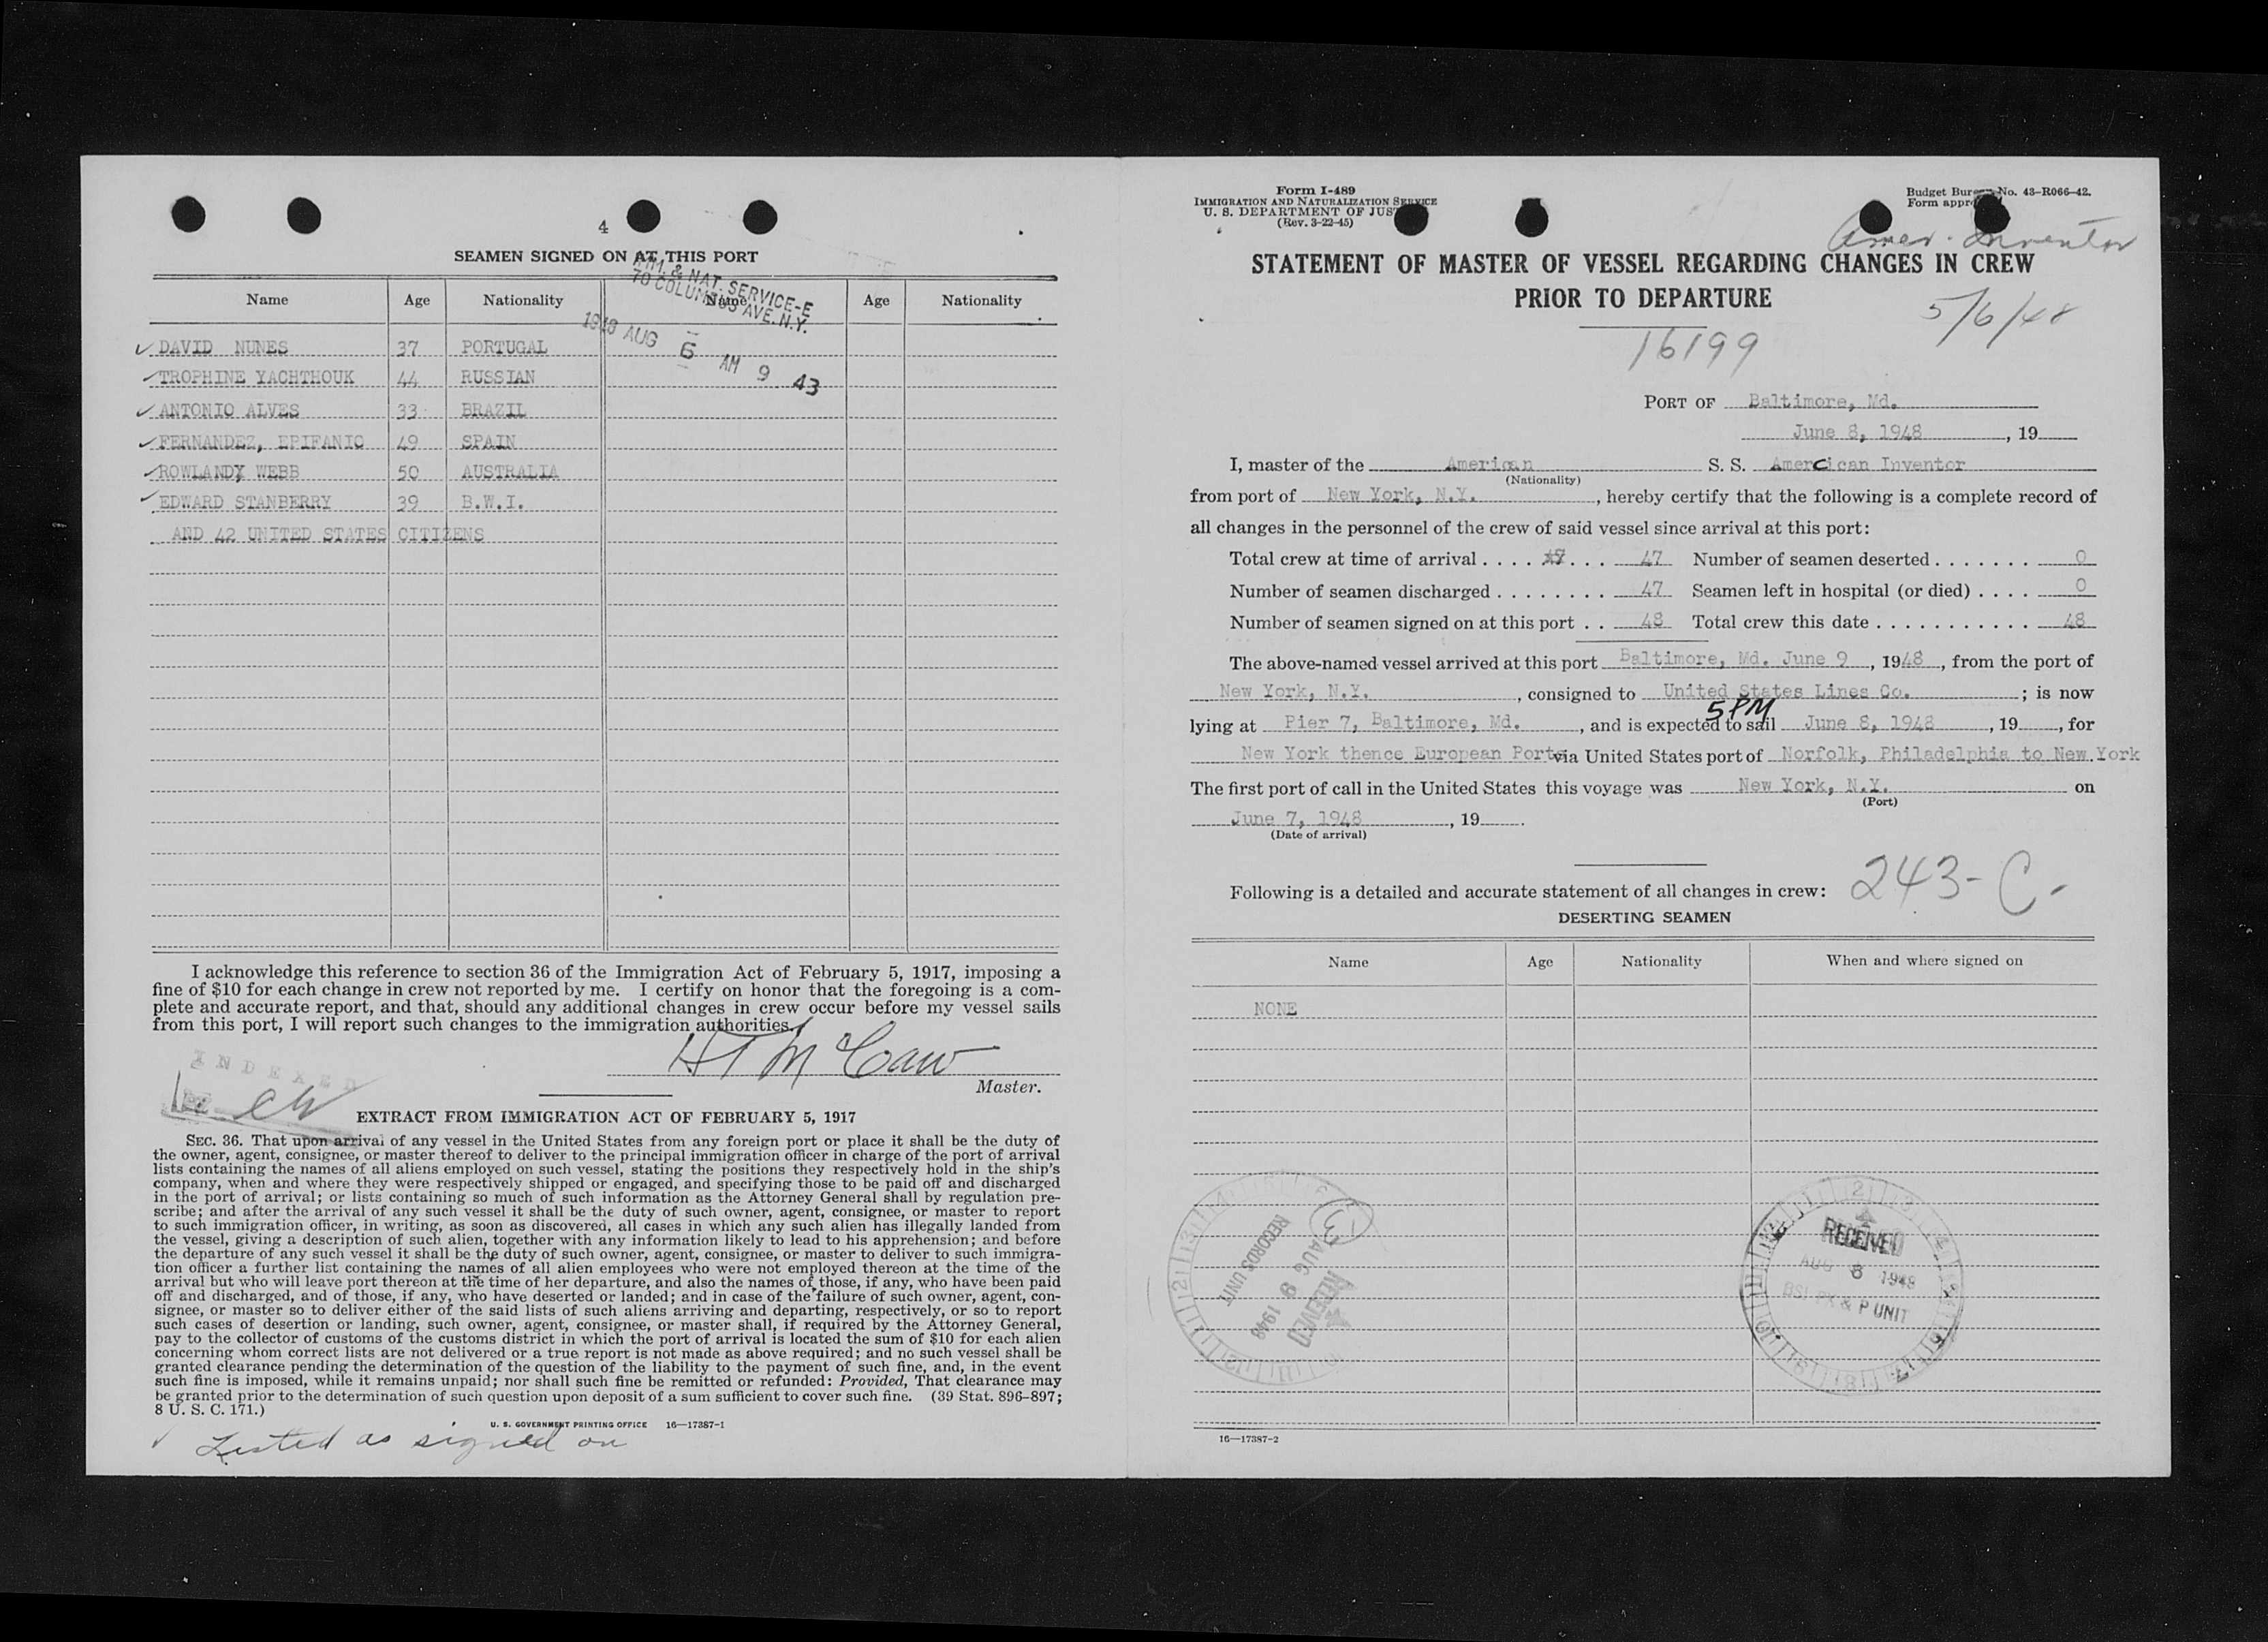 4
SEAMEN SIGNED ON AT THIS PORT
IMM. & NAT. SERVICE-E
70 COLUMBUS AVE. N.Y.
1948 AUG 6 AM 9 43
Name Age Nationality Name Age Nationality
DAVID NUNES 37 PORTUGAL
TROPHINE YACHTHOUK 44 RUSSIAN
ANTONIO ALVES 33 BRAZIL
FERNANDEZ, EPIFANIO 49 SPAIN
ROWLANDX WEBB 50 AUSTRALIA
EDWARD STANBERRY 39 B.W.I.
AND 42 UNITED STATES CITIZENS
I acknowledge this reference to section 36 of the Immigration Act of February 5, 1917, imposing a
fine of $10 for each change in crew not reported by me. I certify on honor that the foregoing is a com-
plete and accurate report, and that, should any additional changes in crew occur before my vessel sails
from this port, I will report such changes to the immigration authorities.
H T McCaw
Master.
INDEXED
EXTRACT FROM IMMIGRATION ACT OF FEBRUARY 5, 1917
SEC. 36. That upon arrival of any vessel in the United States from any foreign port or place it shall be the duty of
the owner, agent, consignee, or master thereof to deliver to the principal immigration officer in charge of the port of arrival
lists containing the names of all aliens employed on such vessel, stating the positions they respectively hold in the ship's
company, when and where they were respectively shipped or engaged, and specifying those to be paid off and discharged
in the port of arrival; or lists containing so much of such information as the Attorney General shall by regulation pre-
scribe; and after the arrival of any such vessel it shall be the duty of such owner, agent, consignee, or master to report
to such immigration officer, in writing, as soon as discovered, all cases in which any such alien has illegally landed from
the vessel, giving a description of such alien, together with any information likely to lead to his apprehension; and before
the departure of any such vessel it shall be the duty of such owner, agent, consignee, or master to deliver to such immigra-
tion officer a further list containing the names of all alien employees who were not employed thereon at the time of the
arrival but who will leave port thereon at the time of her departure, and also the names of those, if any, who have been paid
off and discharged, and of those, if any, who have deserted or landed; and in case of the failure of such owner, agent, con-
signee, or master so to deliver either of the said lists of such aliens arriving and departing, respectively, or so to report
such cases of desertion or landing, such owner, agent, consignee, or master shall, if required by the Attorney General,
pay to the collector of customs of the customs district in which the port of arrival is located the sum of $10 for each alien
concerning whom correct lists are not delivered or a true report is not made as above required; and no such vessel shall be
granted clearance pending the determination of the question of the liability to the payment of such fine, and, in the event
such fine is imposed, while it remains unpaid; nor shall such fine be remitted or refunded: Provided, That clearance may
be granted prior to the determination of such question upon deposit of a sum sufficient to cover such fine. (39 Stat. 896-897;
8 U. S. C. 171.)
U. S. GOVERNMENT PRINTING OFFICE 16—17387-1
Listed as signed on
Form I-489
IMMIGRATION AND NATURALIZATION SERVICE
U. S. DEPARTMENT OF JUS
(Rev. 3-22-45)
Budget Bureau No. 43-R066-42.
Form appro
Amer. Inventor
STATEMENT OF MASTER OF VESSEL REGARDING CHANGES IN CREW
PRIOR TO DEPARTURE
5/6/48
16199
PORT OF Baltimore, Md.
June 8, 1948, 19
I, master of the American S. S. Amercican Inventor
(Nationality)
from port of New York, N.Y., hereby certify that the following is a complete record of
all changes in the personnel of the crew of said vessel since arrival at this port:
Total crew at time of arrival . . . . . . . 47 Number of seamen deserted . . . . . . . 0
Number of seamen discharged . . . . . . . . 47 Seamen left in hospital (or died) . . . . 0
Number of seamen signed on at this port . . 48 Total crew this date . . . . . . . . . . . 48
The above-named vessel arrived at this port Baltimore, Md. June 9, 1948, from the port of
New York, N.Y., consigned to United States Lines Co.; is now
5 PM
lying at Pier 7, Baltimore, Md., and is expected to sail June 8, 1948, 19, for
New York thence European Ports via United States port of Norfolk, Philadelphia to New York
The first port of call in the United States this voyage was New York, N.Y. on
(Port)
June 7, 1948, 19.
(Date of arrival)
Following is a detailed and accurate statement of all changes in crew:
243-C-
DESERTING SEAMEN
Name Age Nationality When and where signed on
NONE
3
RECORDS UNIT
AUG 9 1948
RECEIVED
RECEIVED
AUG 8 1948
BSI PK & P UNIT
16—17387-2